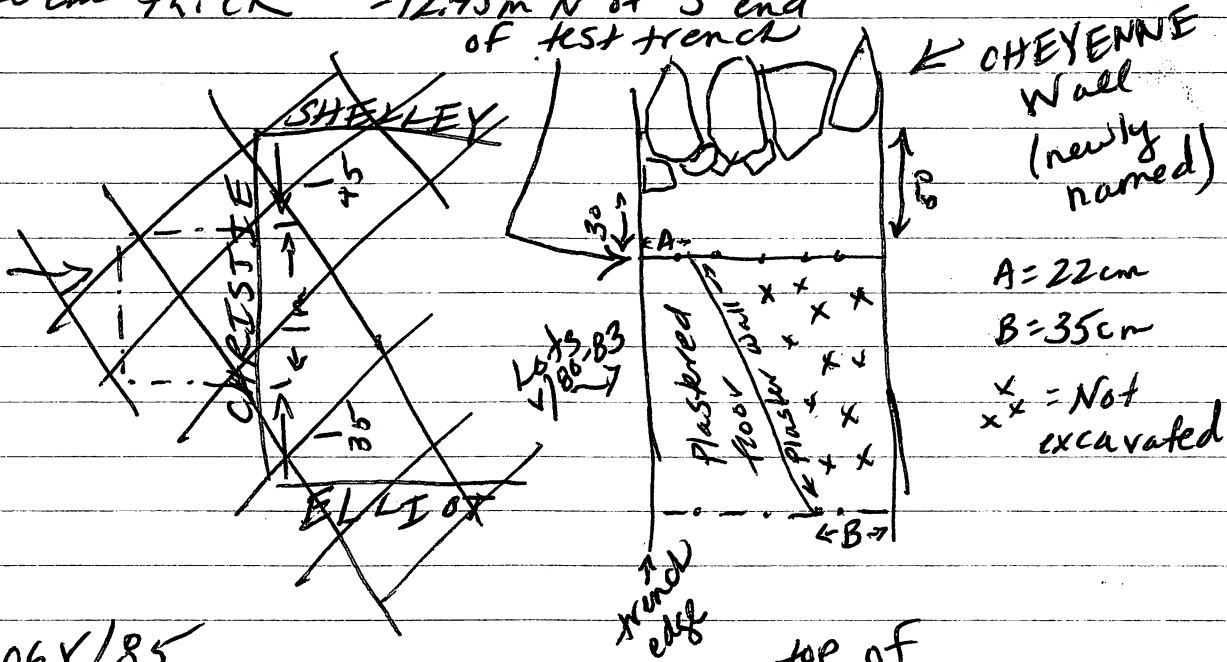 thick ~12.45m N of S end
of test trench
SHELLEY
CHRISTIE
ELLIOT
45
1m
35
30
A
60
CHEYENNE
Wall
(newly
named)
A = 22cm
B = 35cm
x x x = Not
excavated
Lots
180-83
Plastered
floor
Plaster wall
B
trench
edge
top of